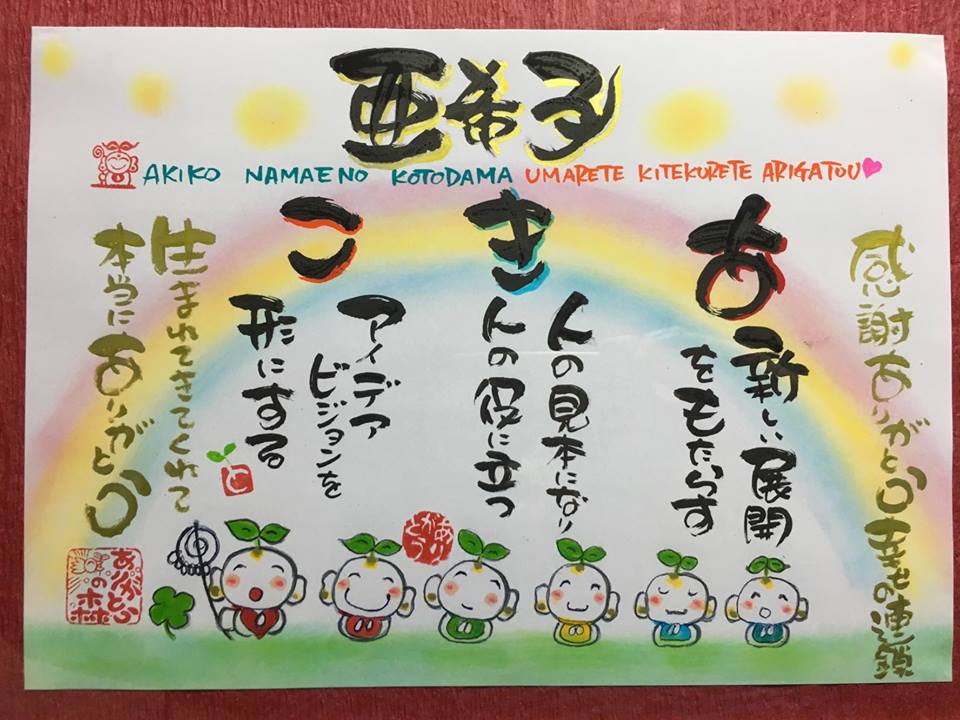 亜希子
AKIKO NAMAE NO KOTODAMA UMARETE KITEKURETE ARIGATOU
感謝ありがとう幸せの連鎖
あ
新しい展開
をもたらす
き
人の見本になり
人の役に立つ
こ
アイデア
ビジョンを
形にする
生まれてきてくれて
本当にありがとう
ありがとう
ありがとう
の森